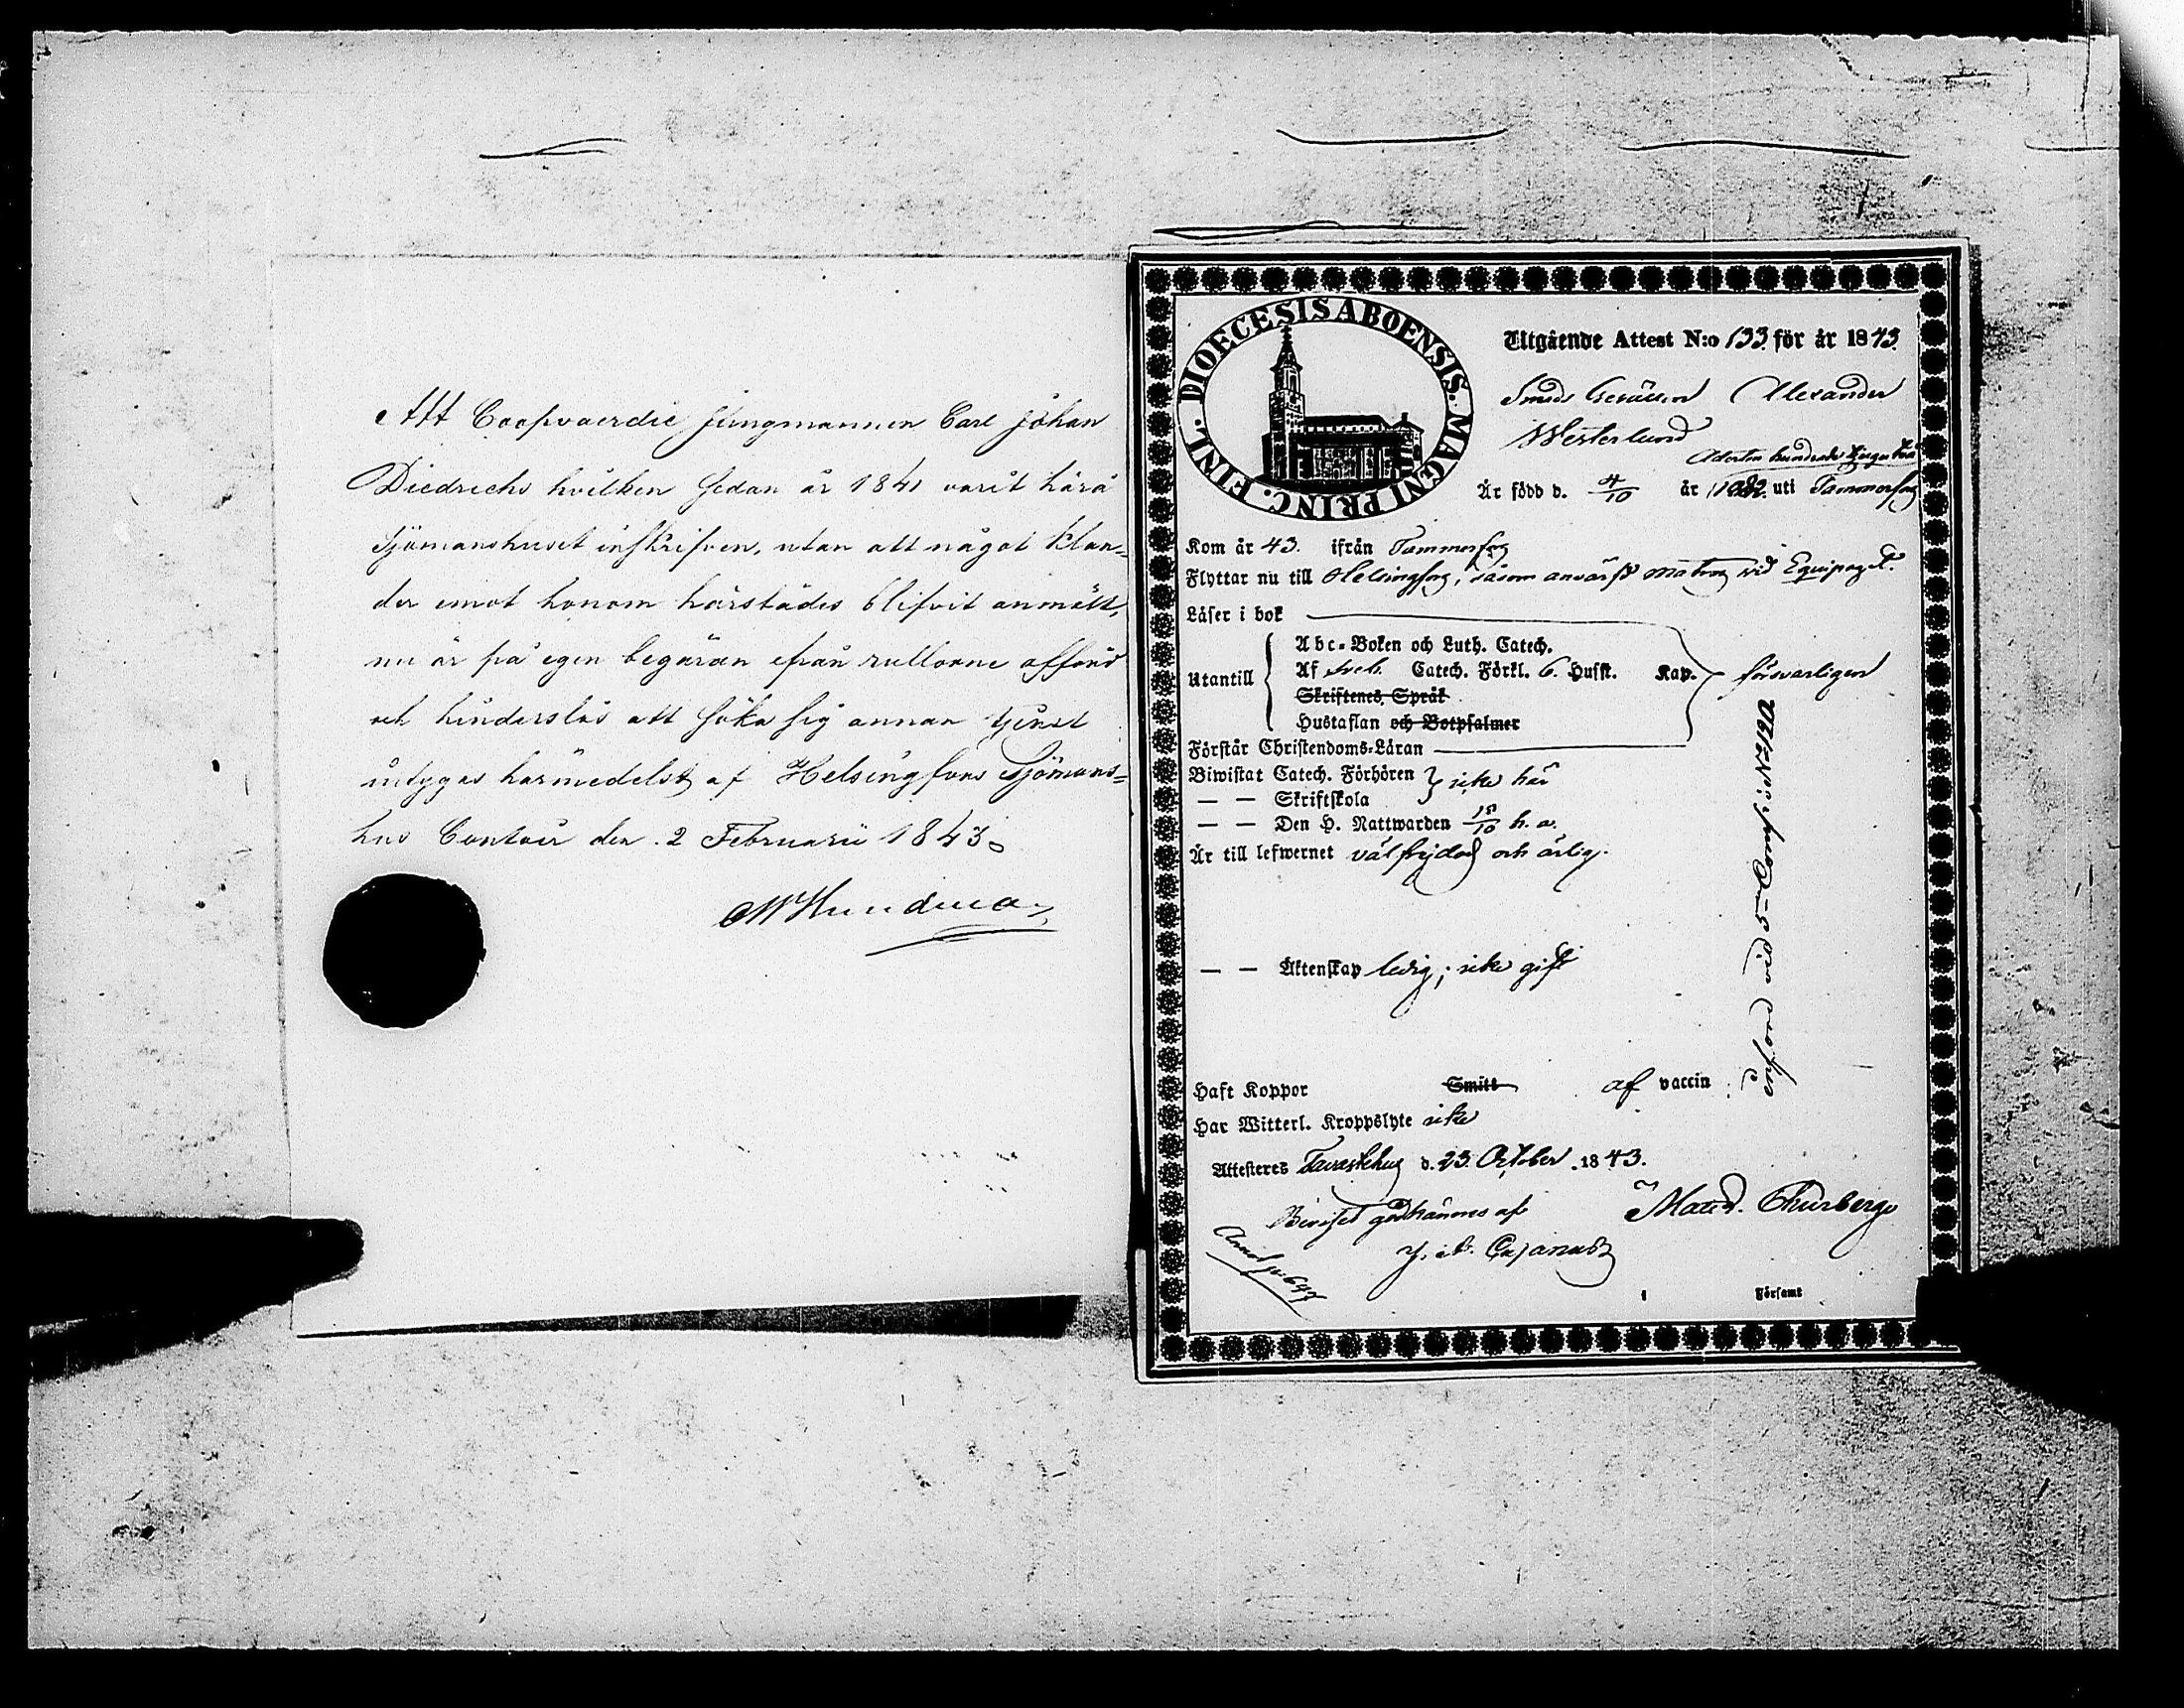 Att Coopvaerdie Jungmannen Carl Johan
Diedrichs hvilken sedan år 1841 varit härå
Sjömanshuset inskrifven, utan att något klan-
der emot honom härstädes blifvit anmält,
nu är på egen begäran ifrån rullorne afförd
och hinderslös att söka sig annan tjenst
intygas härmedelst af Helsingfors Sjömans-
hus Contoir den 2 Februarii 1843.
DIOECESIS ABOENSIS. MAGNI PRINC. FINL.
Utgående Attest N:o 133 för år 1843.
Smeds Gesällen Alexander
Westerlund
Aderton hundrade tjugu två
Är född d. 4/10 år 1822 uti Tammerfors
Kom år 43. ifrån Tammerfors
Flyttar nu till Helsingfors, såsom antagen matros vid Equipaget.
Läser i bok
Abc-Boken och Luth. Catech.
Utantill Af Sveb. Catech. Förkl. 6. Hufst. Kap. försvarligen
Skriftenes Språk
Hustaflan och Botpsalmer
Förstår Christendoms-Läran
Biwistat Catech. Förhören icke här
— — Skriftskola
— — Den H. Nattwarden 15/10 h. a.
Är till lefwernet välfrejdad och ärlig.
— — Äktenskap ledig; icke gift
Haft Koppor Smitt af vaccin
Har Witterl. Kroppslyte icke
Attesteras Tavastehus d. 23 October 1843.
Beviset godkännes af Matts. Thurberg
J. Cajanus
Församl
införd vid 5 Comp. N:o 120